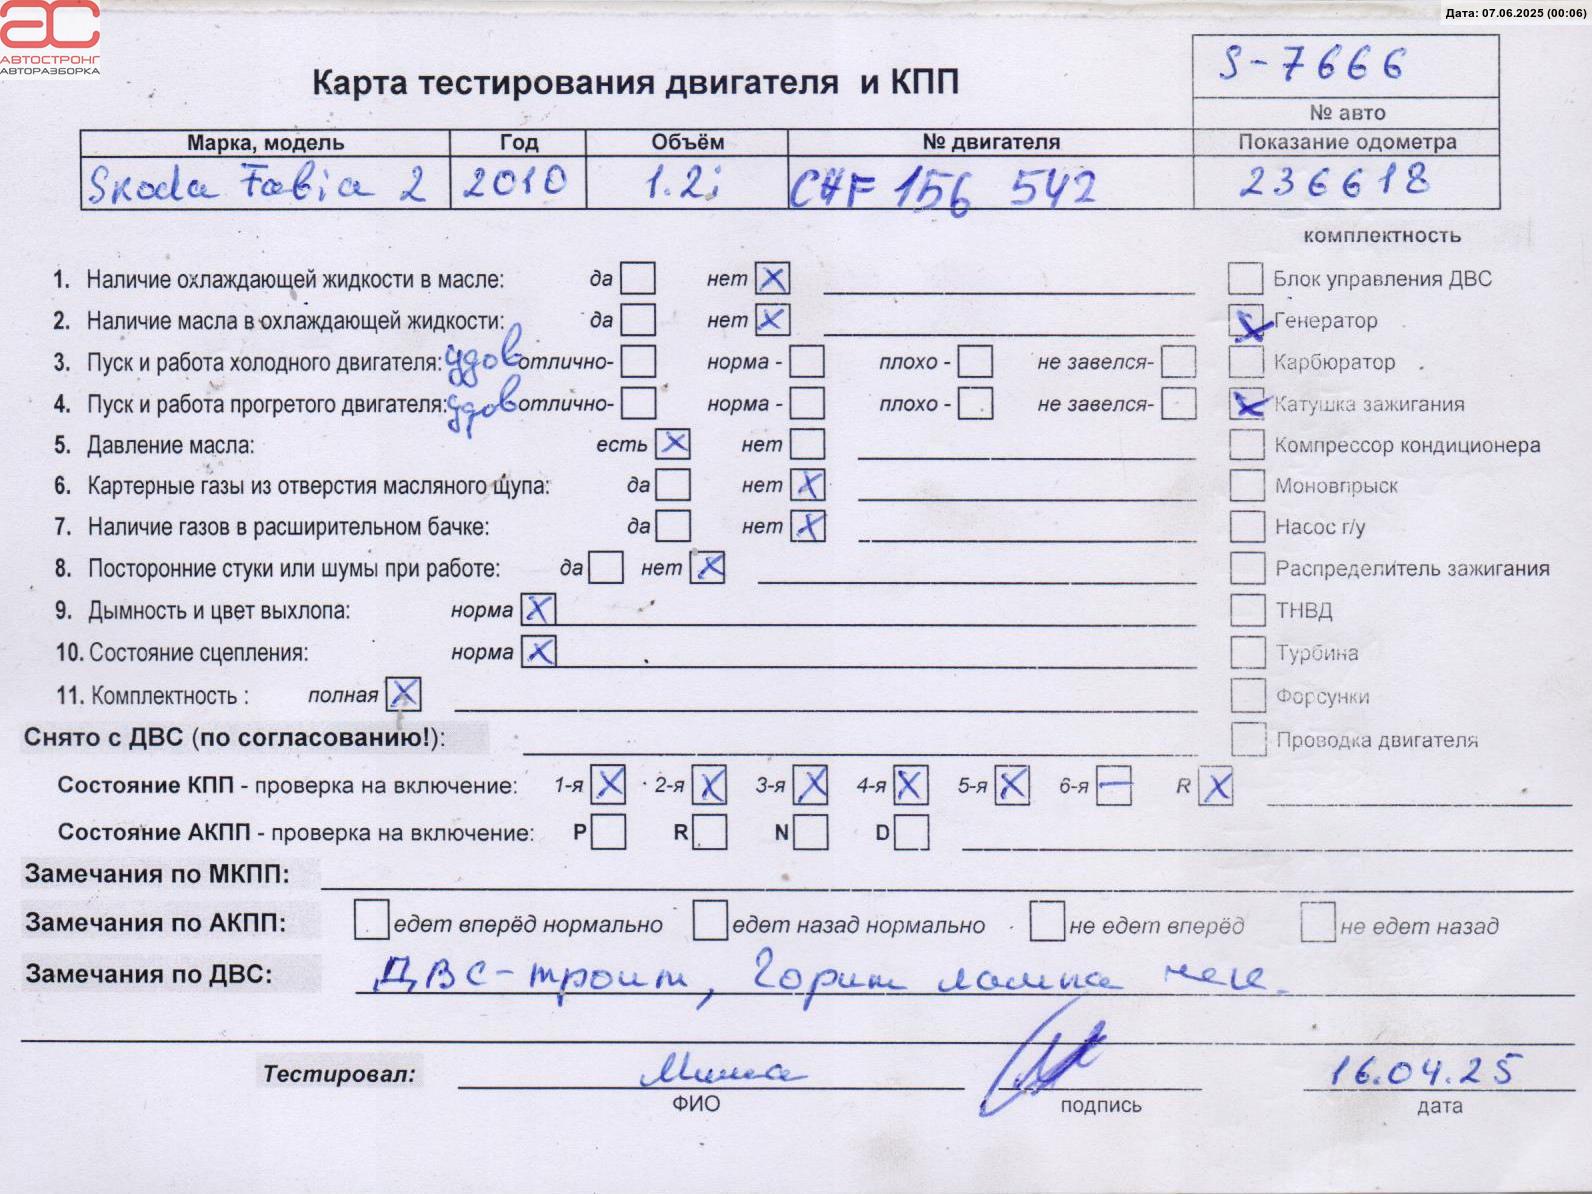 Дата: 07.06.2025 (00:06)
АС
АВТОСТРОНГ
АВТОРАЗБОРКА
Карта тестирования двигателя и КПП
S-7666
№ авто
Марка, модель Год Объём № двигателя Показание одометра
Skoda Fabia 2 2010 1.2i CHF 156 542 236618
комплектность
1. Наличие охлаждающей жидкости в масле: да нет X Блок управления ДВС
2. Наличие масла в охлаждающей жидкости: да нет X X Генератор
3. Пуск и работа холодного двигателя: удов отлично- норма - плохо - не завелся- Карбюратор
4. Пуск и работа прогретого двигателя: удов отлично- норма - плохо - не завелся- X Катушка зажигания
5. Давление масла: есть X нет Компрессор кондиционера
6. Картерные газы из отверстия масляного щупа: да нет X Моновпрыск
7. Наличие газов в расширительном бачке: да нет X Насос г/у
8. Посторонние стуки или шумы при работе: да нет X Распределитель зажигания
9. Дымность и цвет выхлопа: норма X ТНВД
10. Состояние сцепления: норма X Турбина
11. Комплектность : полная X Форсунки
Снято с ДВС (по согласованию!): Проводка двигателя
Состояние КПП - проверка на включение: 1-я X 2-я X 3-я X 4-я X 5-я X 6-я — R X
Состояние АКПП - проверка на включение: P R N D
Замечания по МКПП:
Замечания по АКПП: едет вперёд нормально едет назад нормально не едет вперёд не едет назад
Замечания по ДВС: ДВС-троит, Горит лампа чек.
Тестировал: Миша 16.04.25
ФИО подпись дата